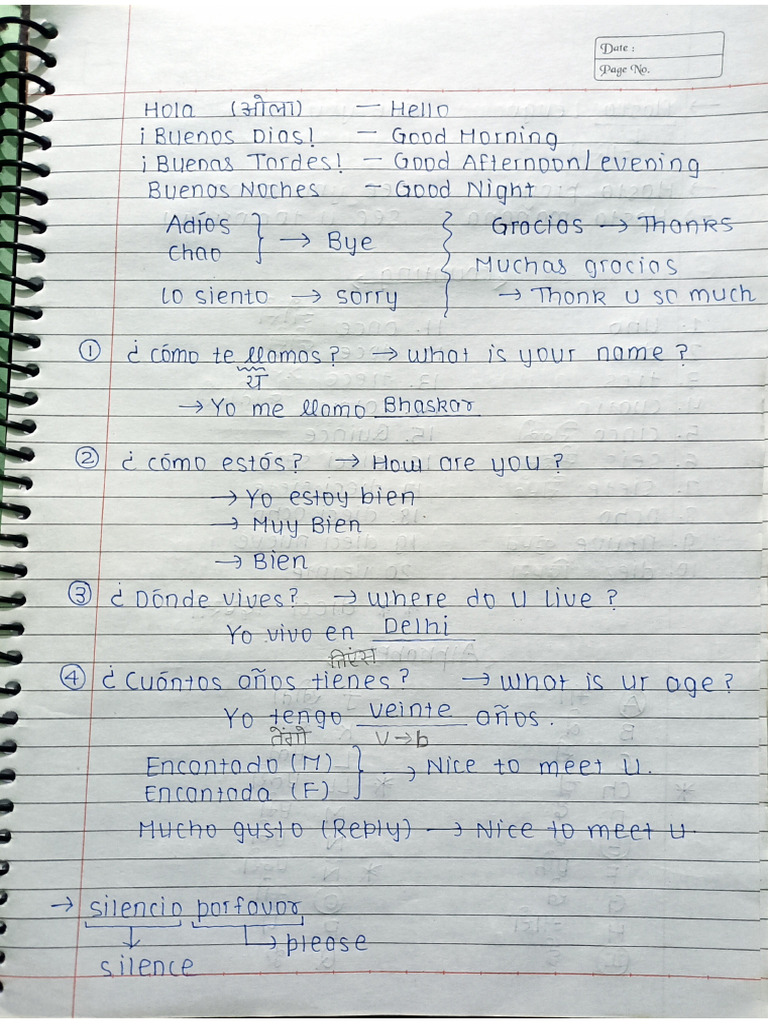 Date :
Page No.
Hola (ओला) — Hello
¡Buenos Dias! — Good Morning
¡Buenas Tardes! — Good Afternoon/evening
Buenas Noches — Good Night
Adíos
Chao
→ Bye
Gracias → Thanks
Muchas gracias
→ Thank u so much
lo siento → sorry
① ¿cómo te llamas? → What is your name?
य
→ Yo me llamo Bhaskar
② ¿cómo estás? → How are you?
→ Yo estoy bien
→ Muy Bien
→ Bien
③ ¿Dónde vives? → Where do u live?
Yo vivo en Delhi
तिएंस
④ ¿Cuántos años tienes? → What is ur age?
Yo tengo veinte años.
तेंगो V→b
Encantado (M)
Encantada (F)
→ Nice to meet u.
Mucho gusto (Reply) → Nice to meet u.
→ silencio porfavor
→ please
silence